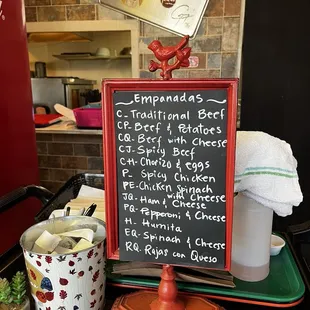 Empanadas
C- Traditional Beef
CP- Beef & Potatoes
CQ- Beef with Cheese
CJ- Spicy Beef
CH- Chorizo & eggs
P- Spicy Chicken
PE- Chicken Spinach
JQ- Ham & Cheese
PQ- Pepperoni & Cheese
H- Humita
EQ- Spinach & Cheese
RQ- Rajas con Queso